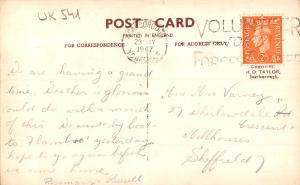 UK 541
POST CARD
PRINTED IN ENGLAND
FOR CORRESPONDENCE
ADDRESS ONLY
1947
VOLUNTEER
FORCES
POSTAGE REVENUE
Copyright
H. D. TAYLOR,
Scarborough.
We are having a grand
time. Weather is glorious
could do with a month
of this. We went by boat
to Flambro' yesterday
hope to go again before
we come home.
Rosemary
Mrs Varney
57
Crescent
Millhouses
Sheffield 7